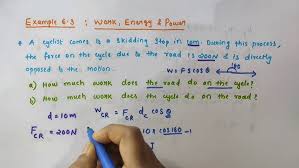 Example 6.3 : Work, Energy & Power
A cyclist comes to a skidding stop in 10m. During this process,
the force on the cycle due to the road is 200N & is directly
opposed to the motion. W = FS cosθ 180
a) How much work does the road do on the cycle?
b) How much work does the cycle do on the road?
d = 10m W_CR = F_CR d_c cos θ
F_CR = 200N 10 x cos180 -1
J